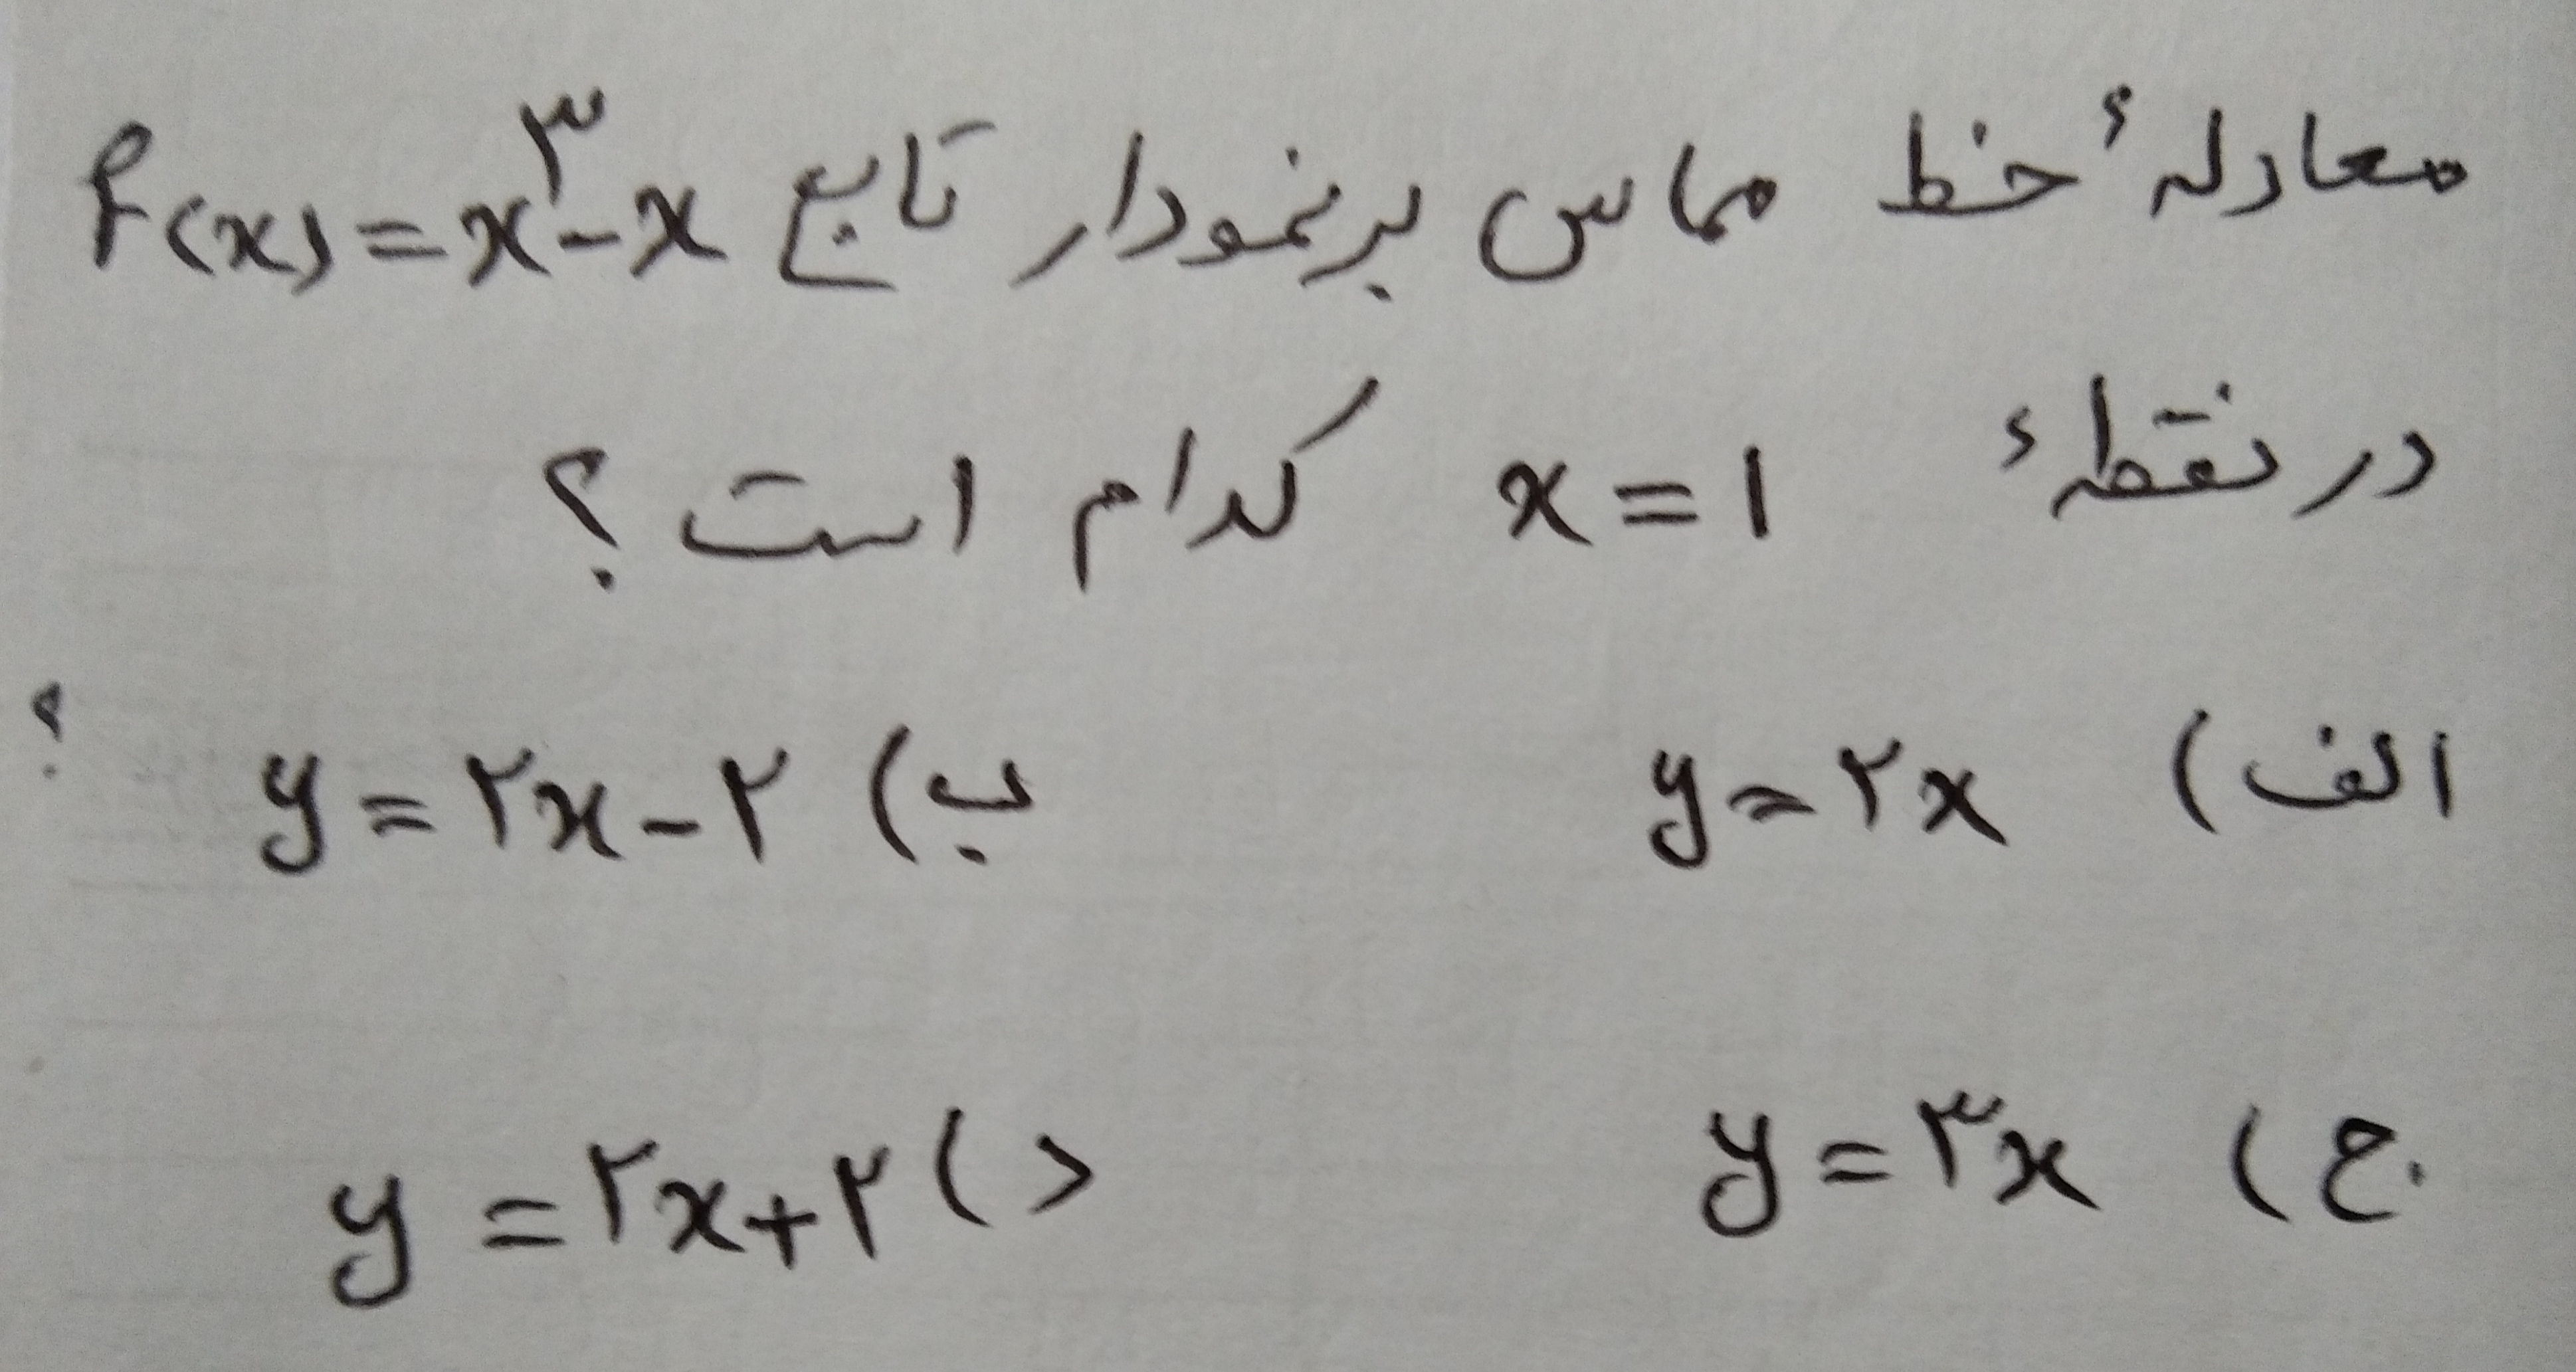 معادلهٔ خط مماس بر نمودار تابع f(x)=x^۳-x
در نقطهٔ x=۱ کدام است؟
الف) y=۲x ب) y=۲x-۲
ج) y=۳x د) y=۲x+۲